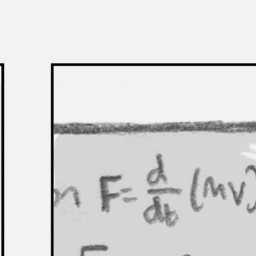 n F = d/db (mv)